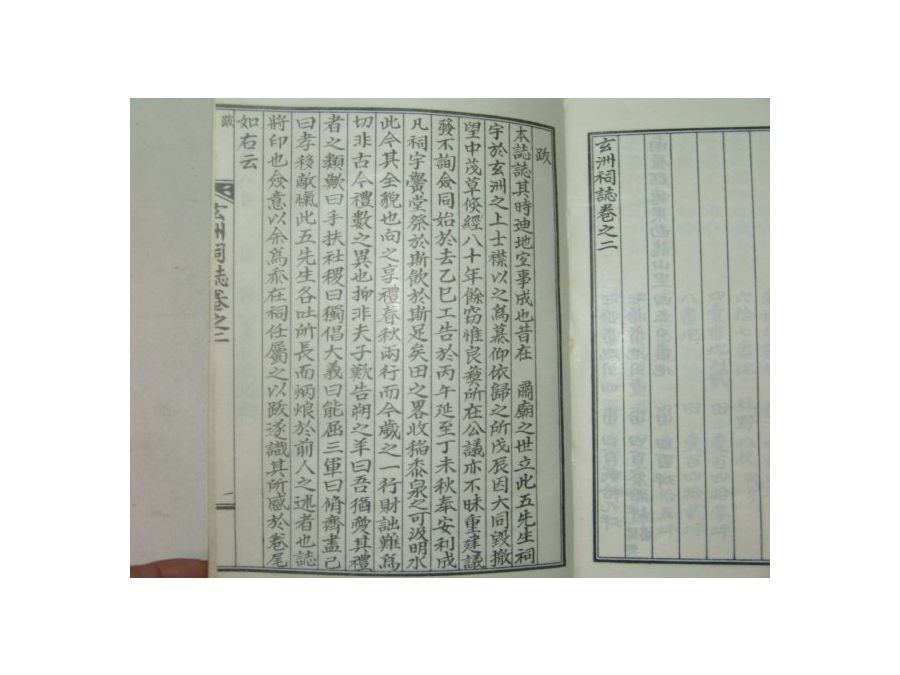 玄洲祠誌卷之二
跋
本誌誌其時迪地空事成也昔在 肅廟之世立此五先生祠
宇於玄洲之上士襟以之爲慕仰依歸之所戊辰因大同毀撤
望中茂草倐經八十年餘窃惟良彛所在公議亦不昧重建議
發不詢僉同始於去乙巳工告於丙午延至丁未秋奉安利成
凡祠宇黌堂祭於斯飮於斯足矣田之畧收稲黍泉之可汲明水
此今其全貌也向之享禮春秋兩行而今歲之一行財詘難爲
切非古今禮數之異也抑非夫子歎告朔之羊曰吾猶愛其禮
者之類歟曰手扶社稷曰獨倡大義曰能屈三軍曰脩齊盡己
曰孝移敵愾此五先生各吐所長而炳烺於前人之述者也誌
將印也僉意以余爲忝在祠任屬之以跋遂識其所感於卷尾
如右云
跋
玄洲祠誌卷之二
一